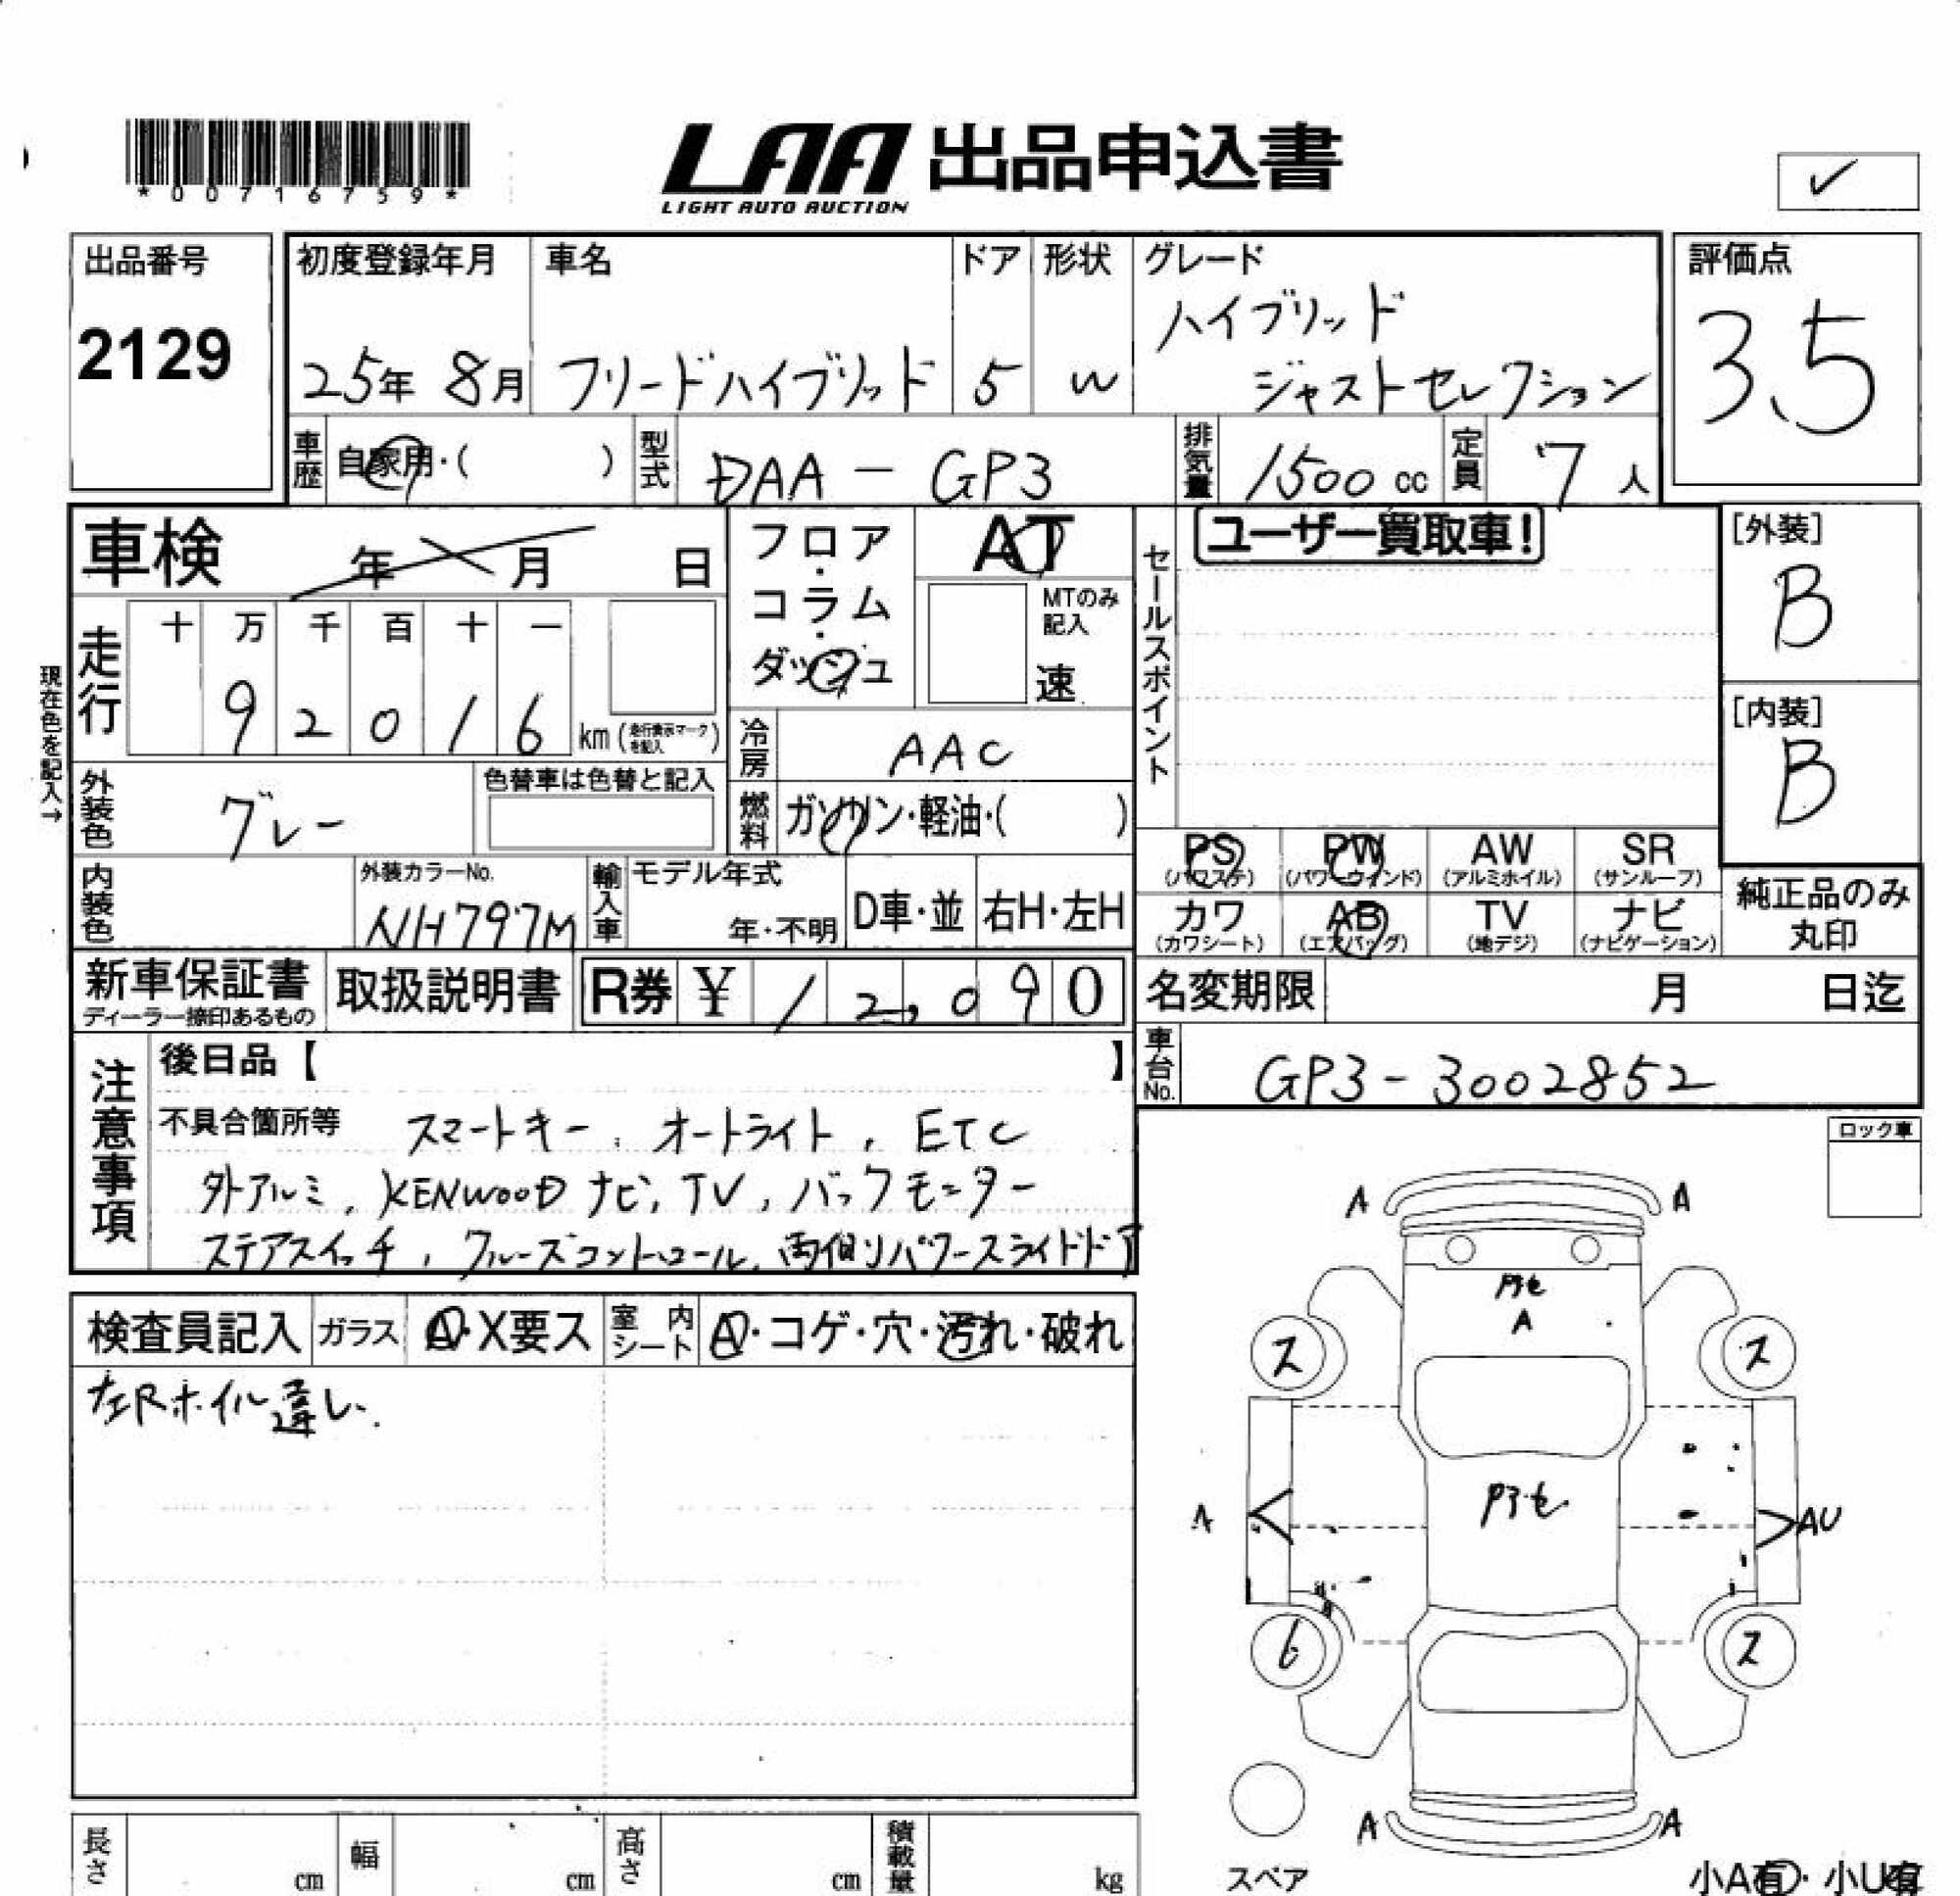 *00716759*
LAA 出品申込書
LIGHT AUTO AUCTION
✓
出品番号
2129
初度登録年月
25年 8月
車名
フリードハイブリッド
ドア
5
形状
W
グレード
ハイブリッド
ジャストセレクション
評価点
3.5
車歴
自家用・( )
型式
DAA - GP3
排気量
1500 cc
定員
7 人
車検 年 月 日
フロア・コラム・ダッシュ
AT
MTのみ記入
速
セールスポイント
ユーザー買取車!
[外装]
B
[内装]
B
現在色を記入→
走行
十 万 千 百 十 一
9 2 0 1 6 km (走行表示マークを記入)
冷房
AAC
外装色
グレー
色替車は色替と記入
燃料
ガソリン・軽油・( )
PS (パワステ)
PW (パワーウインド)
AW (アルミホイル)
SR (サンルーフ)
カワ (カワシート)
AB (エアバッグ)
TV (地デジ)
ナビ (ナビゲーション)
純正品のみ丸印
内装色
外装カラーNo.
NH797M
輸入車
モデル年式
年・不明
D車・並
右H・左H
新車保証書
ディーラー捺印あるもの
取扱説明書
R券 ¥ 12,090
名変期限 月 日迄
車台No.
GP3-3002852
注意事項
後日品【 】
不具合箇所等 スマートキー、オートライト、ETC
外アルミ、KENWOODナビ、TV、バックモニター
ステアスイッチ、クルーズコントロール、両側パワースライドドア
ロック車
検査員記入
ガラス
A・X要ス
室内シート
A・コゲ・穴・汚れ・破れ
左Rホイル違い.
A A
A
ス ス
A AU
6 ス
A A
スペア
小A有・小U有
長さ cm
幅 cm
高さ cm
積載量 kg